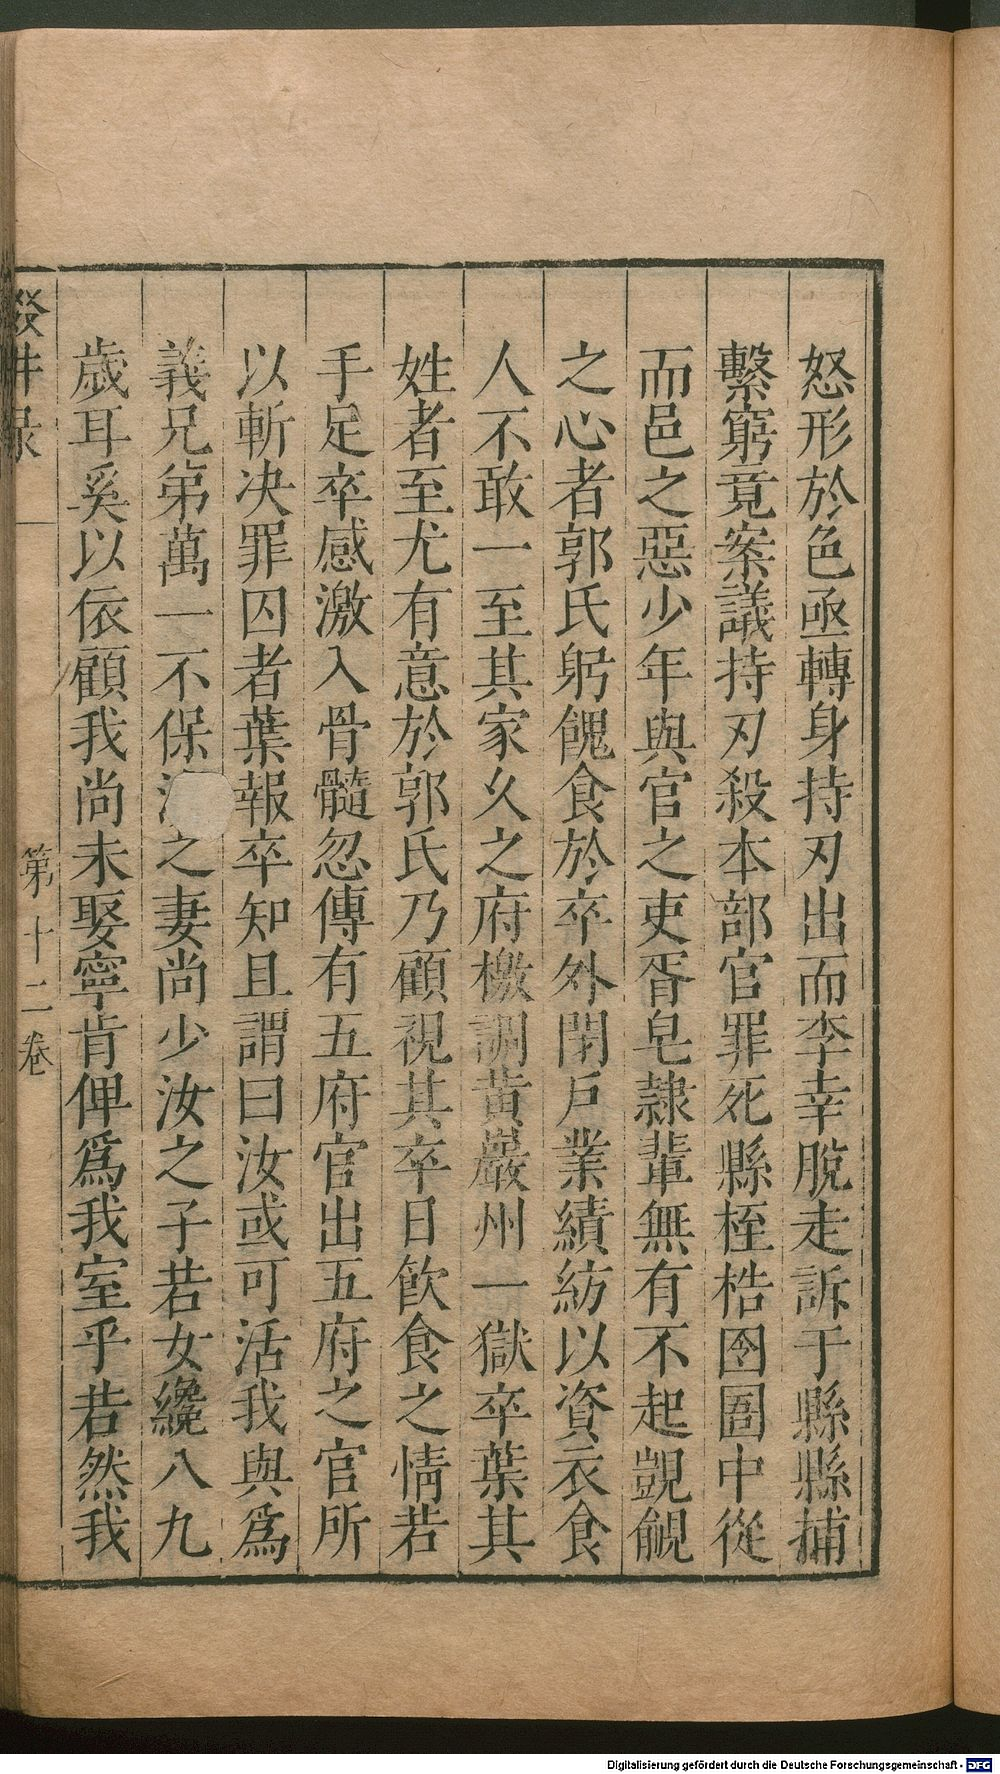 怒形於色亟轉身持刃出而李幸脫走訴于縣縣捕
繫窮竟案議持刃殺本部官罪死縣桎梏囹圄中從
而邑之惡少年與官之吏胥皂隸輩無有不起覬覦
之心者郭氏躬餽食於卒外閉戶業績紡以資衣食
人不敢一至其家久之府檄調黄巖州一獄卒葉其
姓者至尤有意於郭氏乃顧視其卒日飲食之情若
手足卒感激入骨髓忽傳有五府官出五府之官所
以斬决罪囚者葉報卒知且謂曰汝或可活我與爲
義兄弟萬一不保之妻尚少汝之子若女纔八九
歲耳奚以依顧我尚未娶寧肯俾爲我室乎若然我
第十二卷
Digitalisierung gefördert durch die Deutsche Forschungsgemeinschaft - DFG